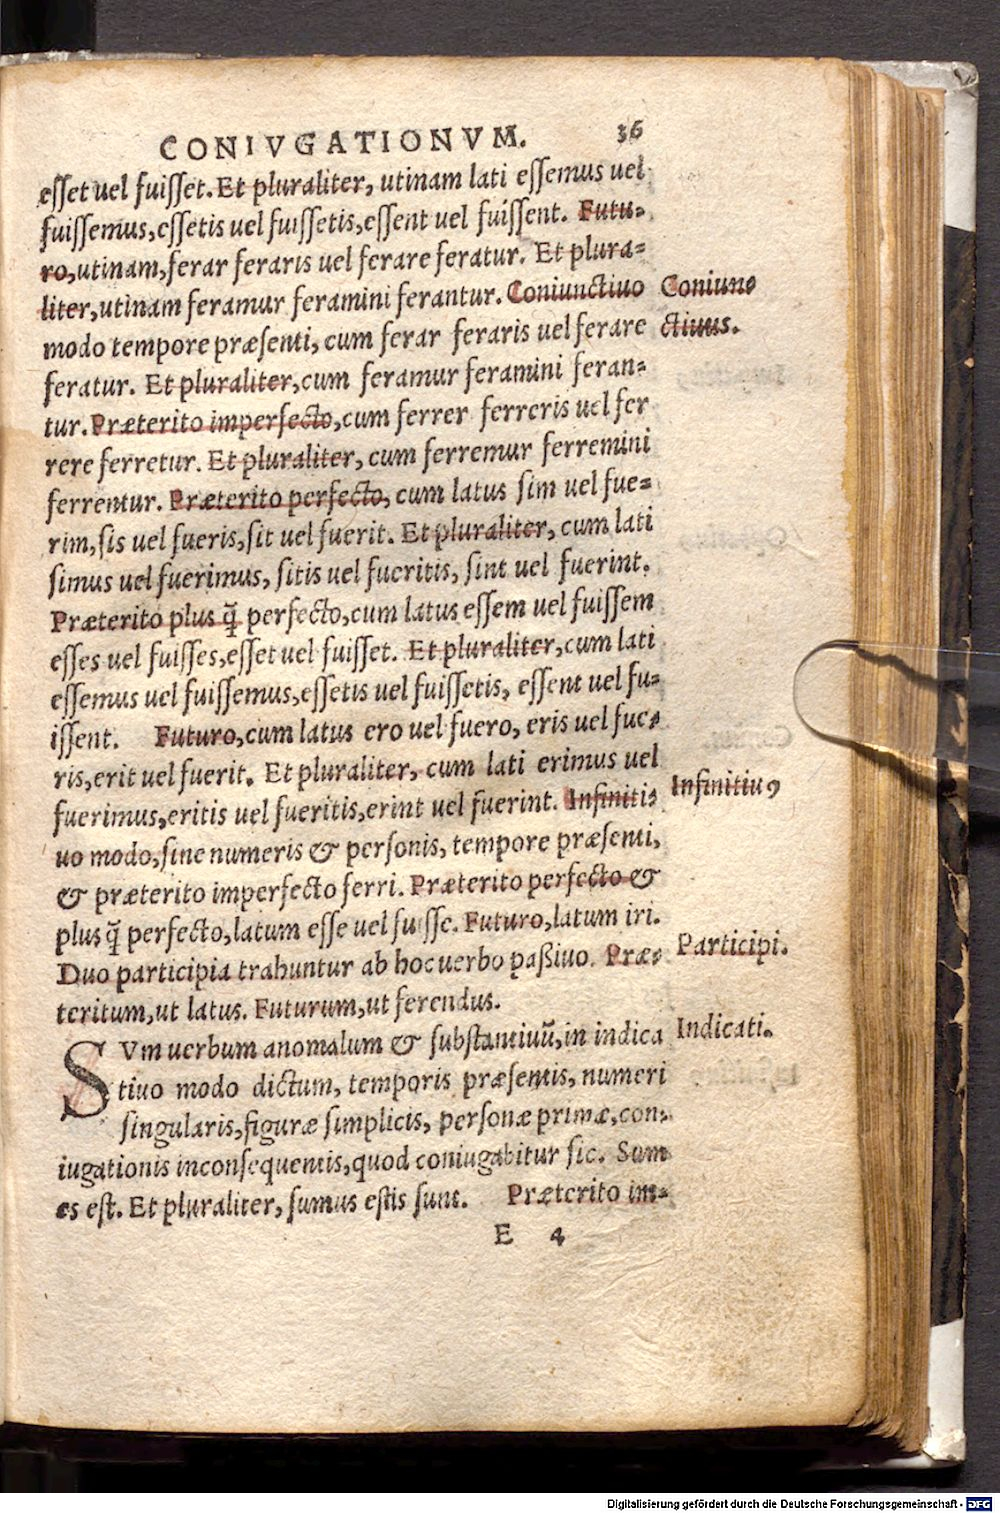 CONIVGATIONVM. 36
esset uel fuisset. Et pluraliter, utinam lati essemus uel
fuissemus, essetis uel fuissetis, essent uel fuissent. Futu-
ro, utinam, ferar feraris uel ferare feratur. Et plura-
liter, utinam feramur feramini ferantur. Coniunctiuo
Coniun-
modo tempore præsenti, cum ferar feraris uel ferare
ctiuus.
feratur. Et pluraliter, cum feramur feramini feran-
tur. Præterito imperfecto, cum ferrer ferreris uel fer
rere ferretur. Et pluraliter, cum ferremur ferremini
ferrentur. Præterito perfecto, cum latus sim uel fue-
rim, sis uel fueris, sit uel fuerit. Et pluraliter, cum lati
simus uel fuerimus, sitis uel fueritis, sint uel fuerint.
Præterito plus q̃ perfecto, cum latus essem uel fuissem
esses uel fuisses, esset uel fuisset. Et pluraliter, cum lati
essemus uel fuissemus, essetis uel fuissetis, essent uel fu-
issent. Futuro, cum latus ero uel fuero, eris uel fue-
ris, erit uel fuerit. Et pluraliter, cum lati erimus uel
fuerimus, eritis uel fueritis, erint uel fuerint. Infiniti-
Infinitiuꝰ
uo modo, sine numeris & personis, tempore præsenti,
& præterito imperfecto ferri. Præterito perfecto &
plus q̃ perfecto, latum esse uel fuisse. Futuro, latum iri.
Duo participia trahuntur ab hoc uerbo paßiuo. Præ-
Participi.
teritum, ut latus. Futurum, ut ferendus.
SVm uerbum anomalum & substantiuũ, in indica
Indicati.
tiuo modo dictum, temporis præsentis, numeri
singularis, figuræ simplicis, personæ primæ, con-
iugationis inconsequentis, quod coniugabitur sic. Sum
es est. Et pluraliter, sumus estis sunt. Præterito im-
E 4
Digitalisierung gefördert durch die Deutsche Forschungsgemeinschaft - DFG